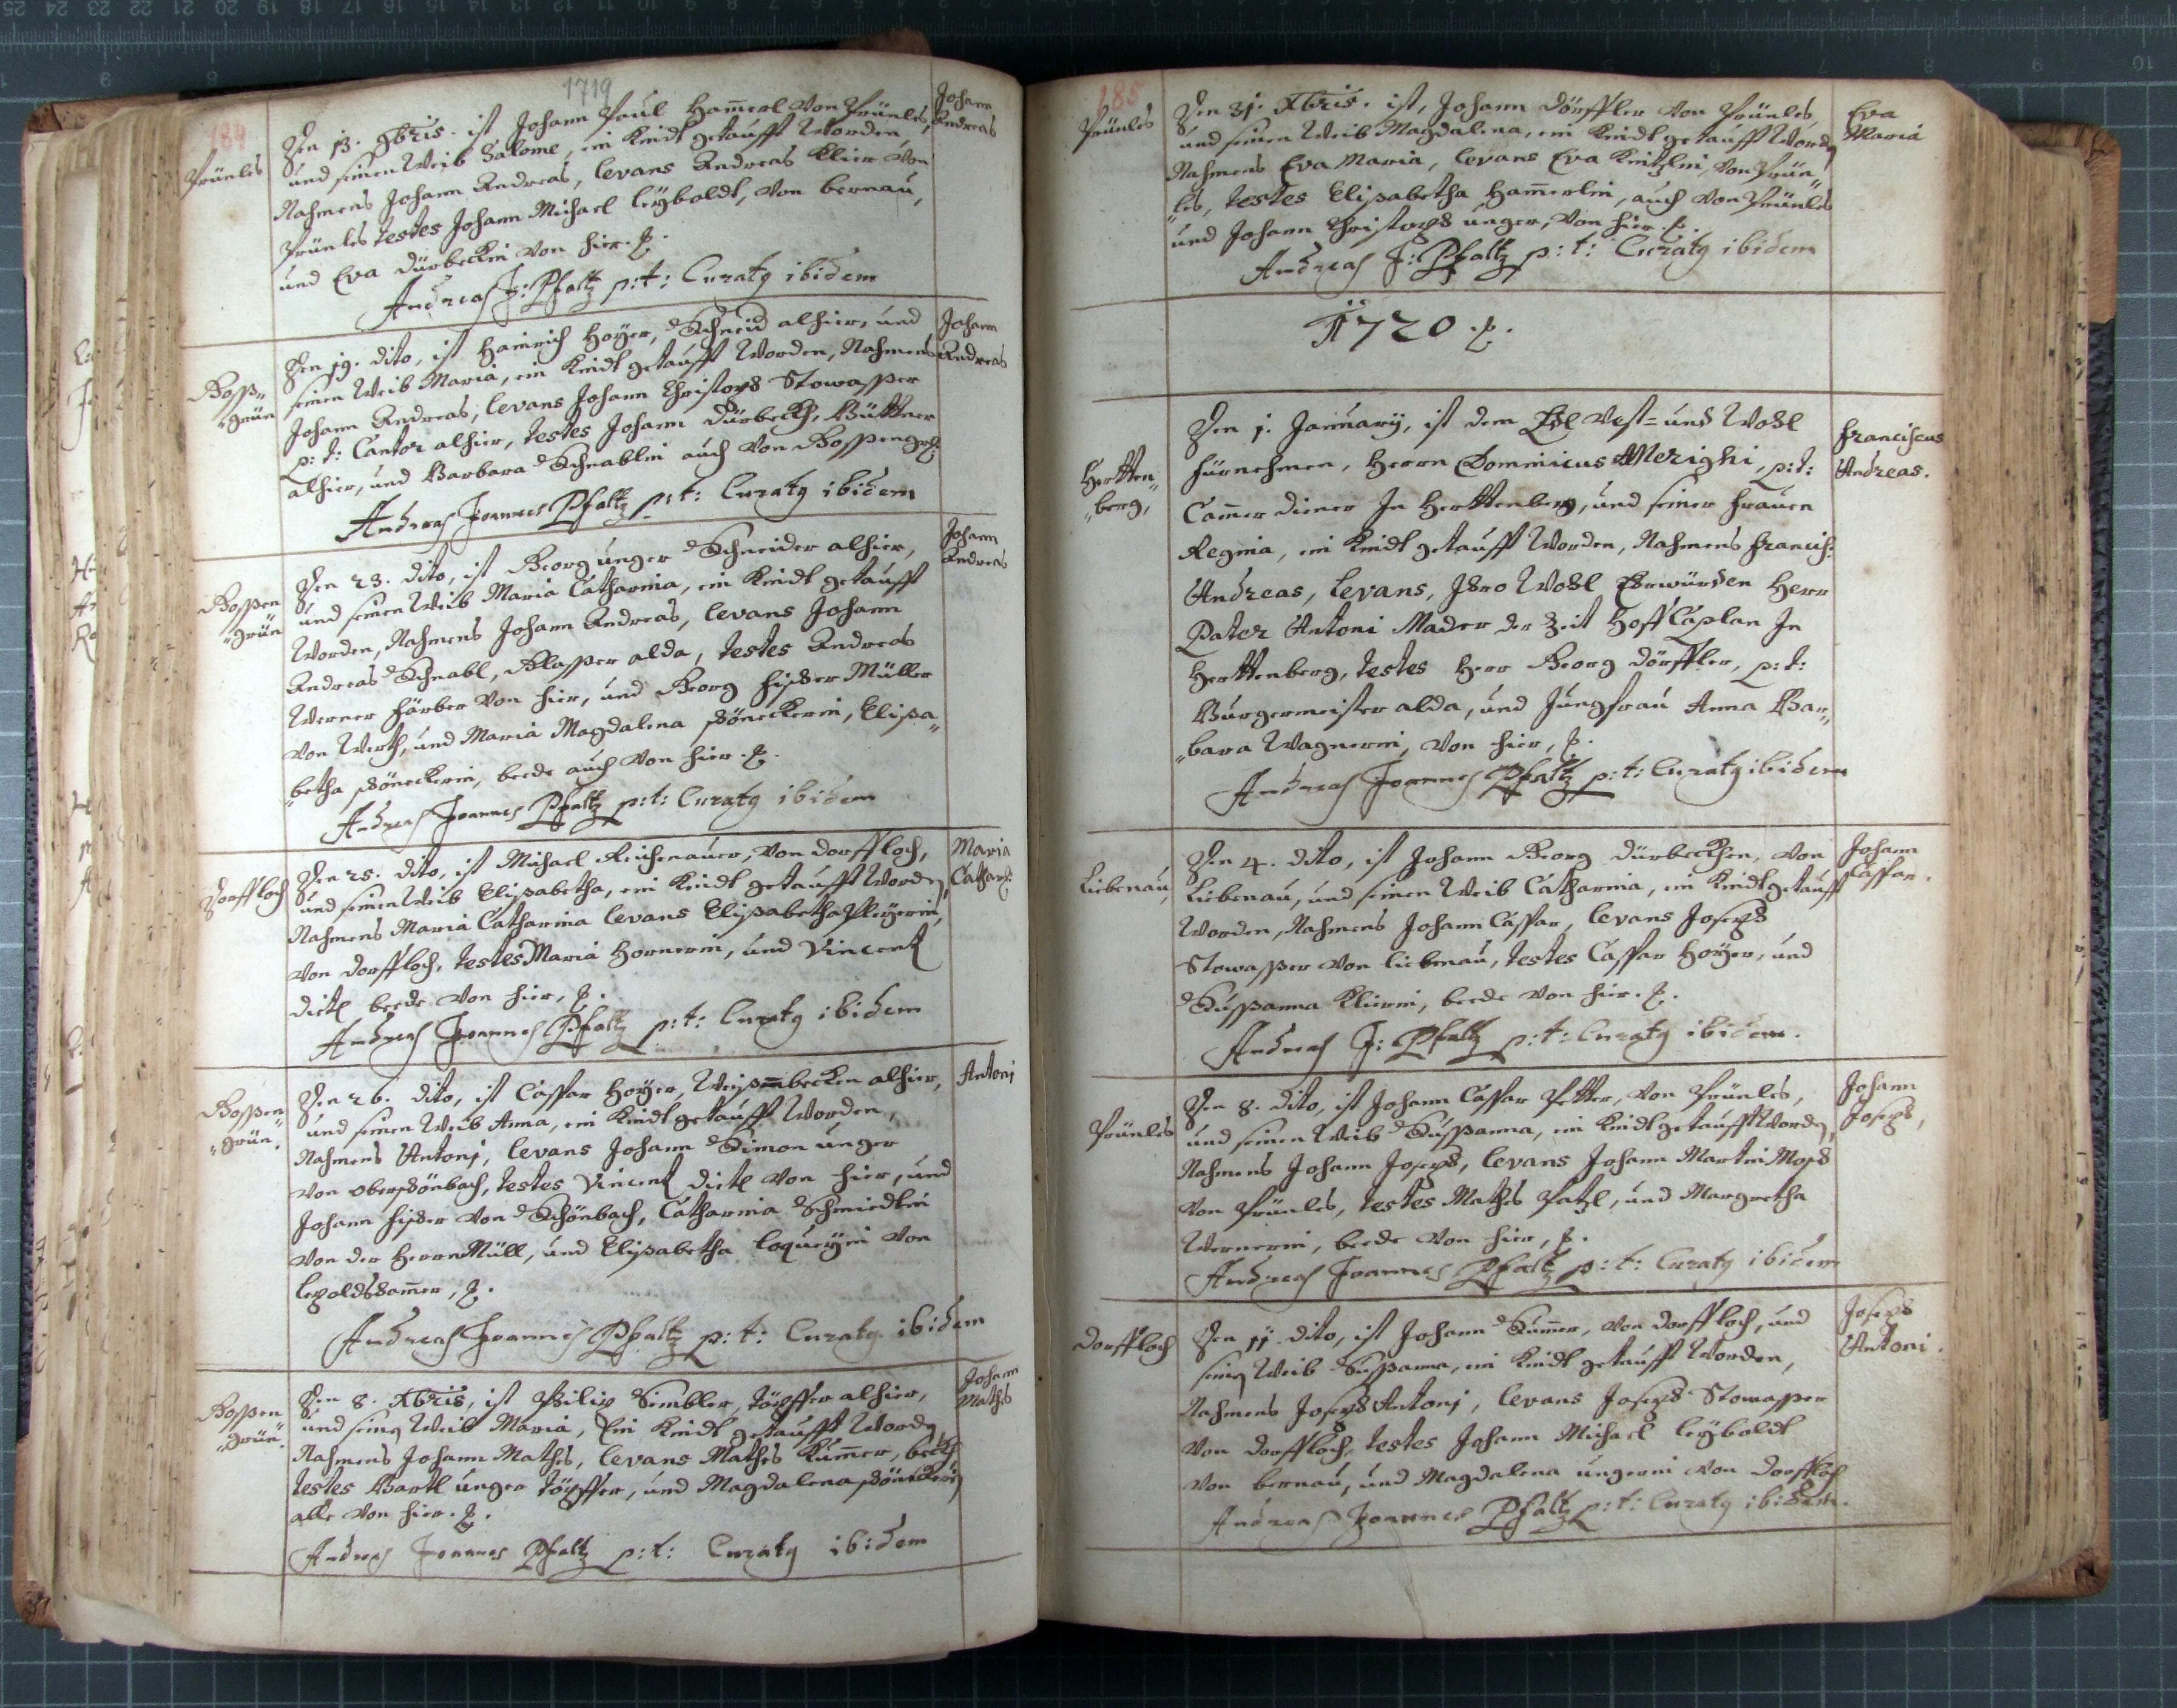 1719
184
Prünles
Den 13. 9bris. ist Johann Paul Ham̄erl von Prünles,
und seinen Weib Salome, ein Kindt getaufft Worden
Nahmens Johann Andreas, levans Andreas Klier von
Prünles testes Johann Michael leÿboldt, von bernau,
und Eva dürbeckin von hier. p.
Andreas J: Pfaltz p: t: Curatg ibidem
Johann
Andreas
Boßen„
„grün
Den 19. dito, ist Hainrich Hoÿer, Schneid alhier, und
seinen Weib Maria, ein Kindt getaufft Worden, Nahmens
Johann Andreas, levans Johann Christoph Stowaßer
p: t: Cantor alhier, testes Johann dürbeckh, Büttner
alhier, und Barbara Schnablin auch von Boßengrü:
Andreas Joannes Pfaltz p: t: Curatg ibidem
Johann
Andreas
Boßen
„grün
Den 23. dito, ist Georg unger Schneider alhier,
und seinen Weib Maria Catharina, ein Kindt getaufft
Worden, Nahmens Johann Andreas, levans Johann
Andreas Schnabl, Glaßer alda, testes Andreas
Werner färber von hier, und Georg fischer Müller
von Werth, und Maria Magdalena schöneckerin, Elisa„
„betha schöneckerin, beede auch von hier. p.
Andreas Joannes Pfaltz p: t: Curatg ibidem
Johann
Andreas
Dorffloch
Den 25. dito, ist Michael Reichenauer, von dorffloch,
und seinen Weib Elisabetha, ein Kindt getaufft Worden,
Nahmens Maria Catharina levans Elisabetha
von dorffloch, testes Maria Hornerin, und Vincentz
dietl beede von hier, p.
Andreas Joannes Pfaltz p: t: Curatg ibidem
Maria
Cathar:
Boßen„
„grün.
Den 26. dito, ist Caspar Hoÿer, Weißenbecken alhier,
und seinen Weib Anna, ein Kindt getaufft Worden,
Nahmens Antonj, levans Johann Simon unger
von oberschönbach, testes Vincentz dietl von hier, und
Johann fischer von Schönbach, Catharina Schmiedlin
von der Herrn Müll, und Elisabetha von
lepoldsham̄er, p.
Andreas Joannes Pfaltz p: t: Curatg ibidem
Antonj
Boßen„
„grün.
Den 8. Xbris, ist Philip Simbler, töpffer alhier,
und seinen Weib Maria, Ein Kindt getaufft Worden
Nahmens Johann Mathes, levans Mathes Kum̄er, beckh
testes Bartl unger töpffer, und Magdalena schöneckerin
alle von hier. p.
Andreas Joannes Pfaltz p: t: Curatg ibidem
Johann
Mathes
185
Prünles
Den 31. Xbris. ist, Johann dörffler von Prünles,
und seinen Weib Magdalena, ein Kindt getaufft Worden
Nahmens Eva Maria, levans Eva von Prün„
„les, testes Elisabetha Ham̄erlin, auch von Prünles
und Johann Christoph unger, von hier. p.
Andreas J: Pfaltz p: t: Curatg ibidem
Eva
Maria
1720. p.
Hertten„
„berg,
Den 1. Januarÿ, ist dem Edl Vest= und Wohl
fürnehmen, Herrn Dominicus Merighi, p: t:
Cam̄er diener In Herttenberg, und seiner frauen
Regina, ein Kindt getaufft Worden, Nahmens Francisc:
Andreas, levans, Ihro Wohl Ehrwürden Herr
Pater Antoni Mader der Zeit Hoff Caplan In
Herttenberg, testes Herr Georg dörffler, p: t:
Burgermeister alda, und Jungfrau Anna Bar„
„bara Wagnerin, von hier, p.
Andreas Joannes Pfaltz p: t: Curatg ibidem
Franciscus
Andreas.
Liebenau,
Den 4. dito, ist Johann Georg dürbeckhen, von
Liebenau, und seinen Weib Catharina, ein Kindt getaufft
Worden, Nahmens Johann Caspar, levans Joseph
Stowaßer von liebenau, testes Caspar Hoÿer, und
Sußanna Klierin, beede von hier. p.
Andreas J: Pfaltz p: t: Curatg ibidem.
Johann
Caspar.
Prünles
Den 8. dito, ist Johann Caspar Petter, von Prünles,
und seinen Weib Sußanna, ein Kindt getaufft Worden,
Nahmens Johann Joseph, levans Johann Martin
von Prünles, testes Mathes Patzl, und Margretha
Wernerin, beede von hier, p.
Andreas Joannes Pfaltz p: t: Curatg ibidem
Johann
Joseph,
Dorffloch
Den 11. dito, ist Johann Sum̄er, von dorffloch, und
seinen Weib Sußanna, ein Kindt getaufft Worden,
Nahmens Joseph Antonj, levans Joseph Stowaßer
von dorffloch, testes Johann Michael leÿboldt
von bernau, und Magdalena ungerin von dorffloch
Andreas Joannes Pfaltz p: t: Curatg ibidem.
Joseph
Antoni.